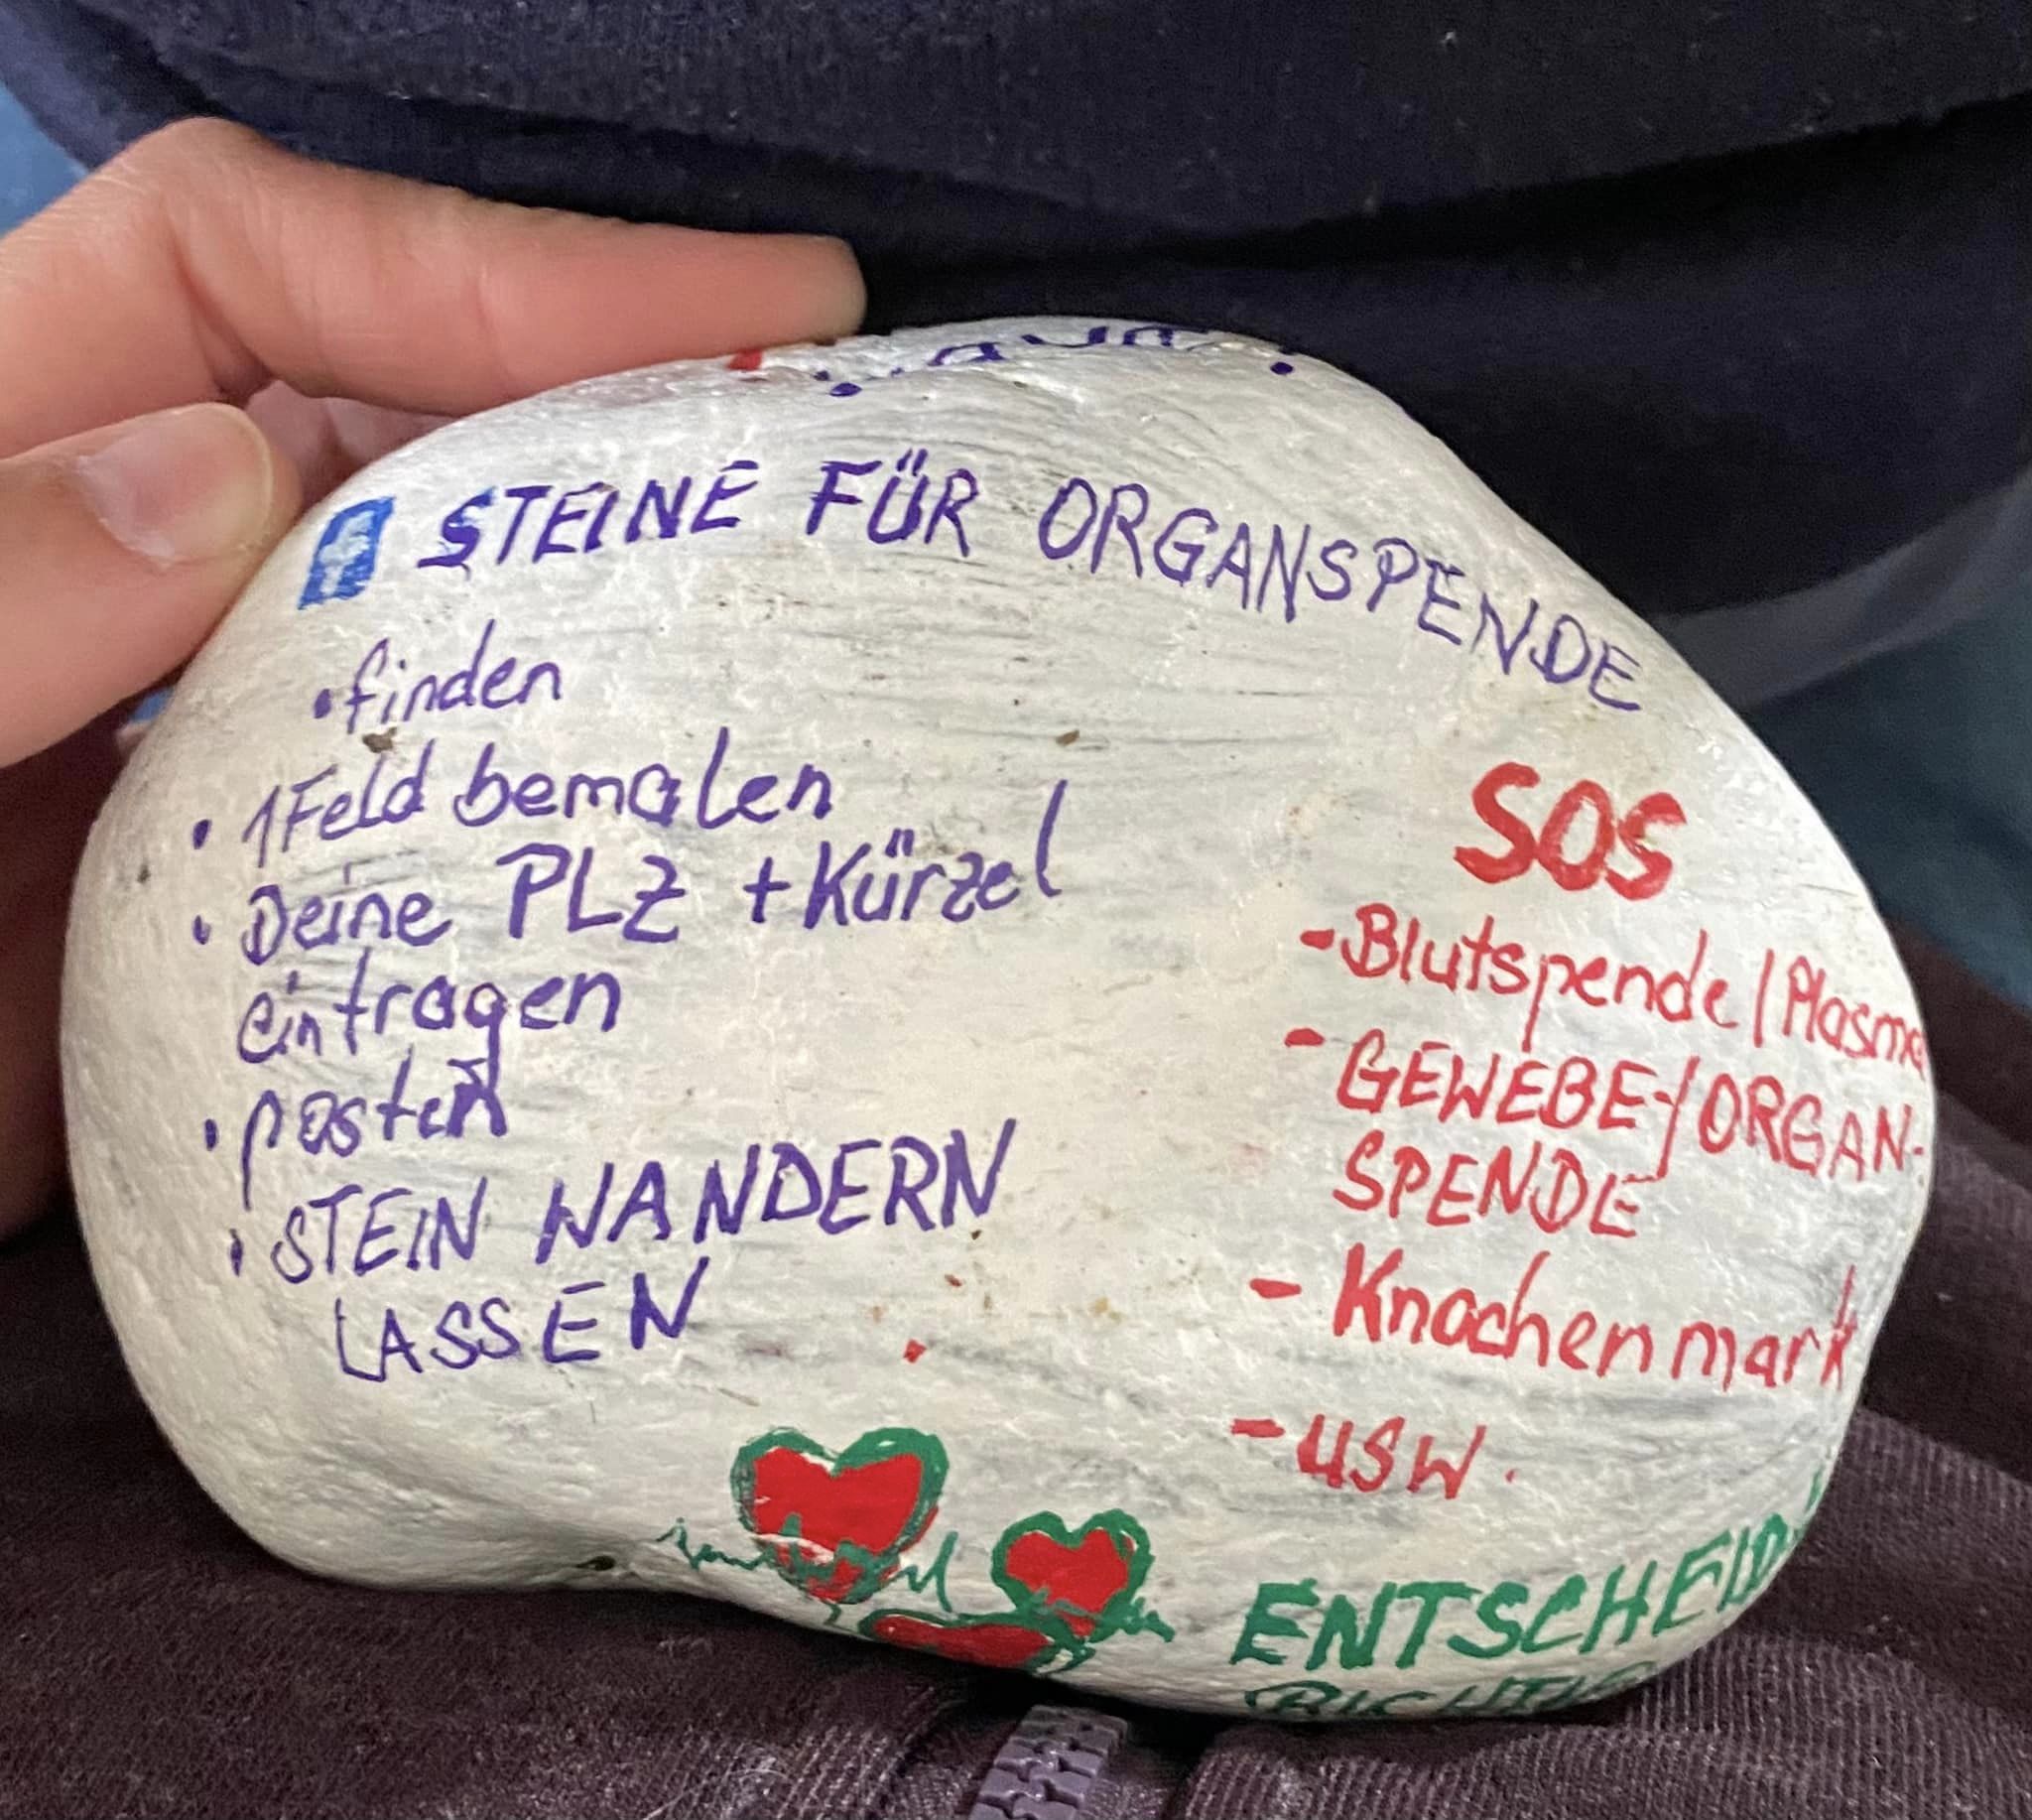 f STEINE FÜR ORGANSPENDE
• finden
• 1 Feld bemalen
• Deine PLZ + Kürzel
eintragen
• posten
• STEIN WANDERN
LASSEN
SOS
- Blutspende / Plasma
- GEWEBE-/ORGAN-
SPENDE
- Knochenmark
- usw.
ENTSCHEID